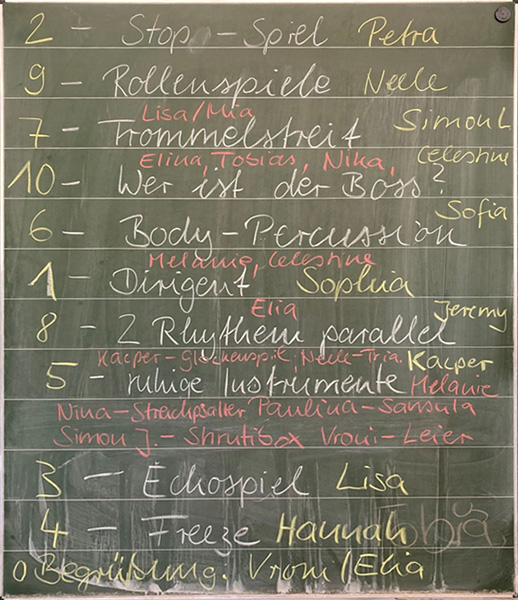 2 - Stop-Spiel Petra
9 - Rollenspiele Neele
Lisa/Mia
7 - Trommelstreit Simon L
Elina, Tobias, Nika, Celestine
10 - Wer ist der Boss?
Sofia
6 - Body-Percussion
Melanie, Celestine
1 - Dirigent Sophia
Elia Jeremy
8 - 2 Rhythem parallel
Kacper-Glockenspiel, Neele-Tria. Kacper
5 - ruhige Instrumente Melanie
Nina-Streichpsalter Paulina-Sansula
Simon J.-Shrutibox Vroni-Leier
3 - Echospiel Lisa
4 - Freeze Hannah
0 Begrüßung: Vroni/Elia